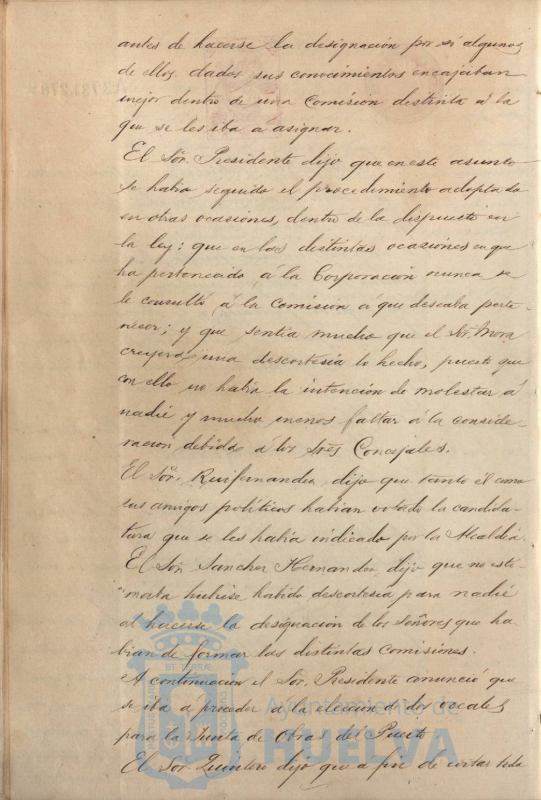 antes de hacerse la designación por si algunos
de ellos dados sus conocimientos encajaban
mejor dentro de una Comisión distinta á la
que se les iba á asignar.
El Sor. Presidente dijo que en este asunto
se habia seguido el procedimiento adoptado
en otras ocasiones, dentro de lo dispuesto en
la ley: que en las distintas ocasiones en que
ha pertenecido á la Corporación nunca se
le consultó á la Comisión a que deseaba perte-
necer; y que sentia mucho que el Sor. Mora
creyera una descortesia lo hecho, puesto que
con ello no habia la intención de molestar á
nadie y mucho menos faltar á la conside-
racion debida á los Sres Concejales.
El Sor. Ruifernandez dijo que tanto él como
sus amigos politicos habian votado la candida-
tura que se les habia indicado por la Alcaldia.
El Sor. Sanchez Hernandez dijo que no esti-
maba hubiese habido descortesia para nadie
al hacerse la designación de los Señores que ha-
bian de formar las distintas Comisiones.
A continuacion el Sor. Presidente anunció que
se iba a proceder a la eleccion de dos vocales
para la Junta de Obras del Puerto.
El Sor Quintero dijo que a fin de evitar toda
Ayuntamiento de
HUELVA